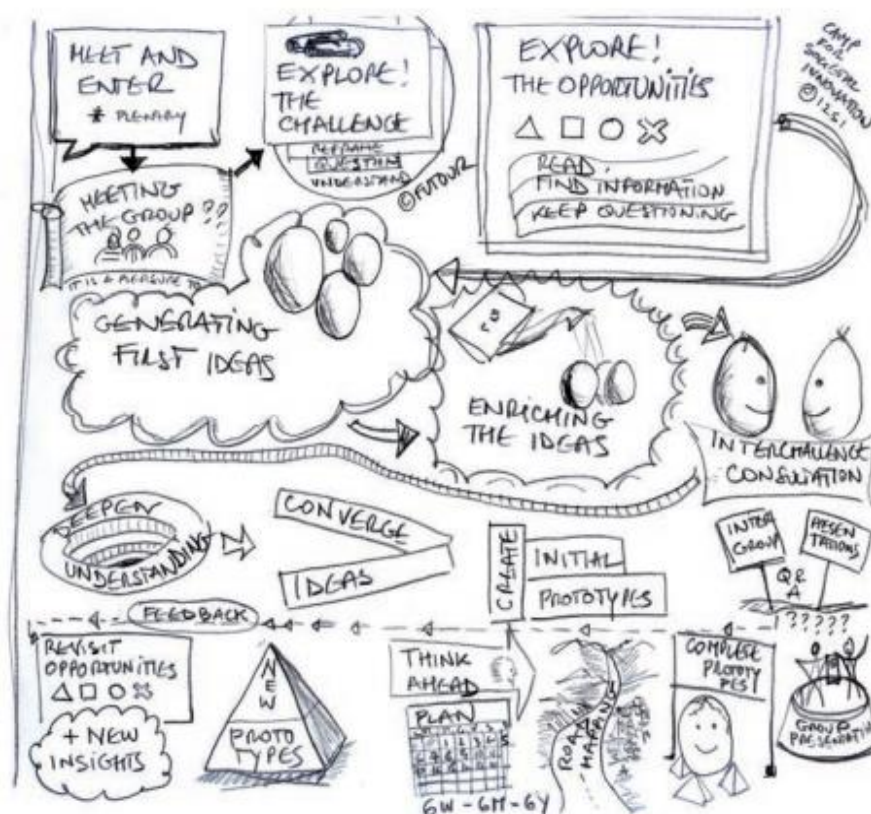 MEET AND
ENTER
* PLENARY
EXPLORE!
THE
CHALLENGE
REFRAME
QUESTION
UNDERSTAND
© FUTOUR
EXPLORE!
THE OPPORTUNITIES
READ
FIND INFORMATION
KEEP QUESTIONING
CAMP
FOR
SOCIETAL
INNOVATION
MEETING
THE GROUP??
IT IS A PLEASURE TO
GENERATING
FIRST IDEAS
ENRICHING
THE IDEAS
INTERCHALLENGE
CONSULTATION
DEEPEN
UNDERSTANDING
CONVERGE
IDEAS
CREATE
INITIAL
PROTOTYPES
INTER
GROUP
PRESEN
TATIONS
Q&
A
FEEDBACK
?????
REVISIT
OPPORTUNITIES
+ NEW
INSIGHTS
NEW
PROTO
TYPES
THINK
AHEAD
PLAN
6W-6M-6Y
ROAD
MAPPING
COMPLETE
PROTOTY
PES!
GROUP
PRESENTATION